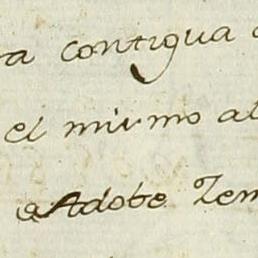 ra contigua
el mismo al
Adobe